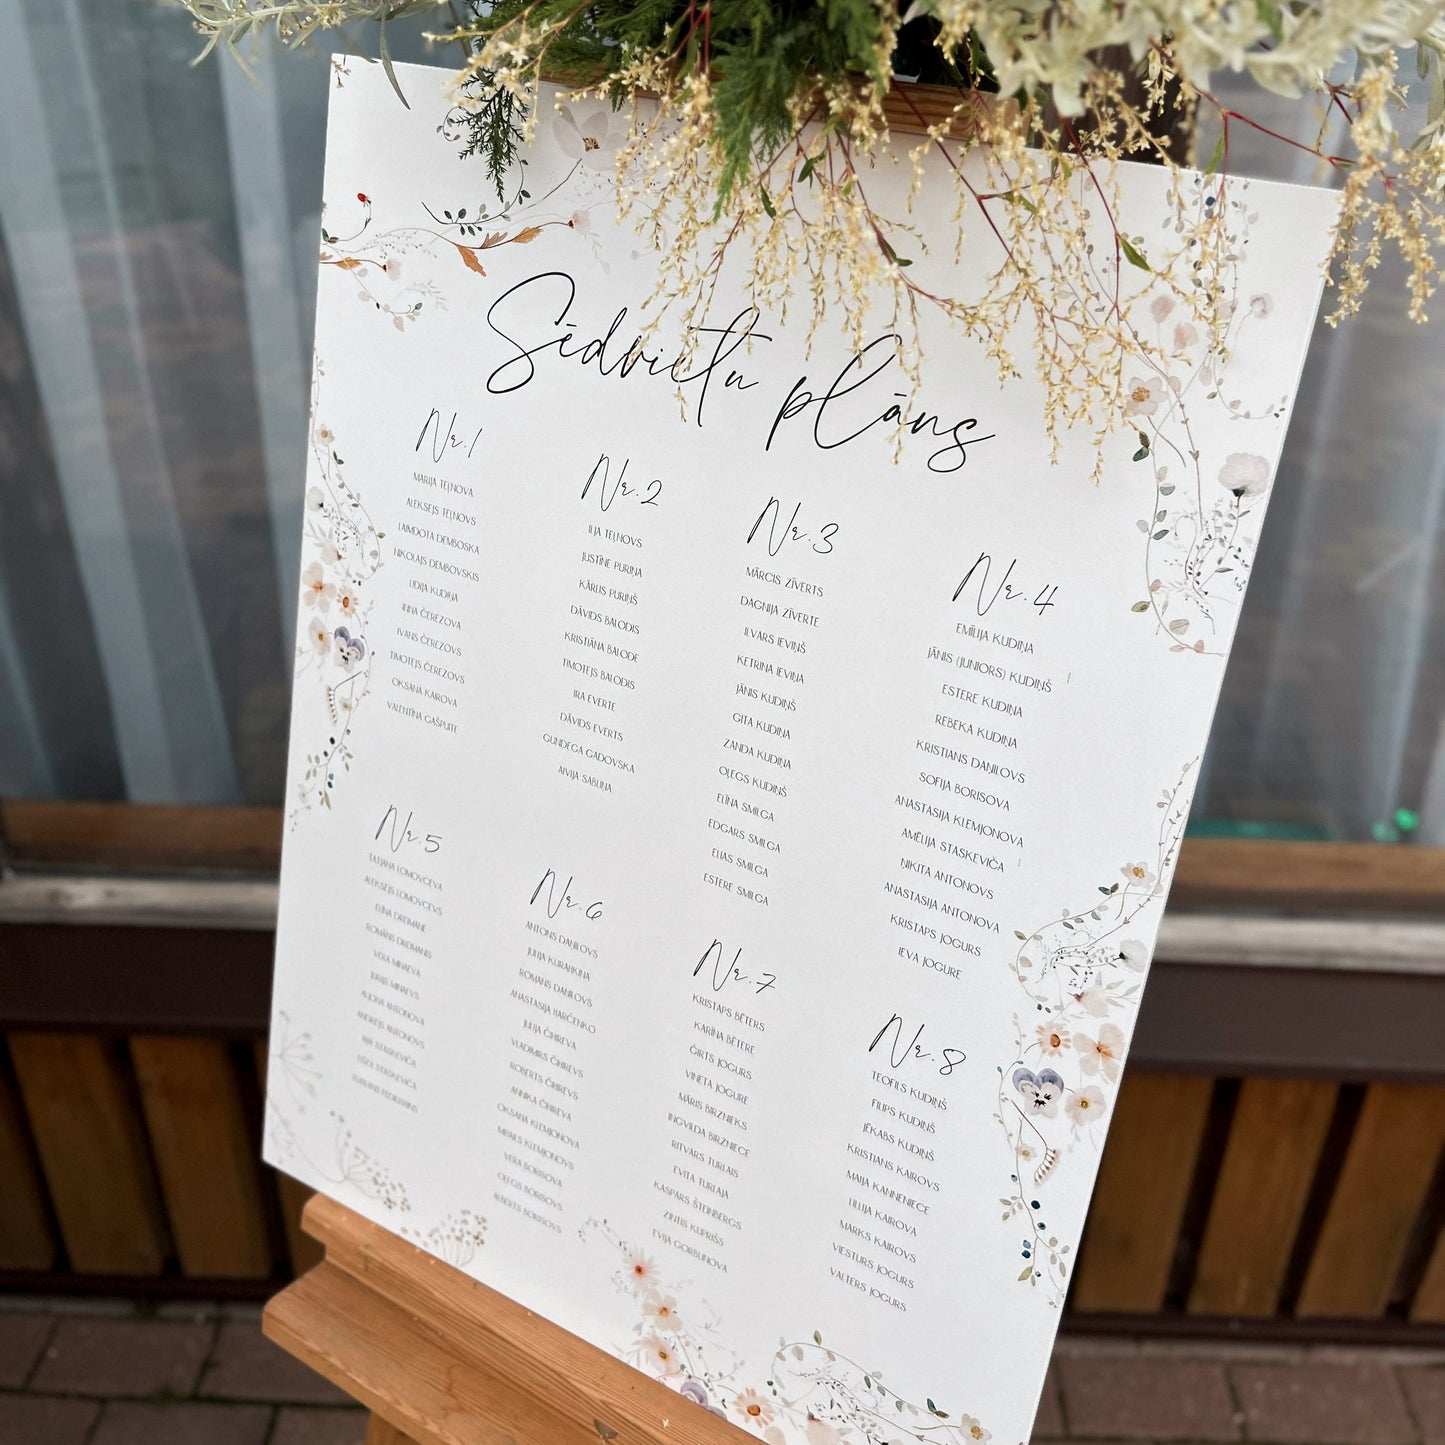 Sēdvietu plāns
Nr.1
MARIJA TEĻNOVA
ALEKSEJS TEĻNOVS
LAIMDOTA DEMBOSKA
NIKOLAJS DEMBOVSKIS
LIDIJA KUDIŅA
INNA ČEREZOVA
IVANS ČEREZOVS
TIMOTEJS ČEREZOVS
OKSANA KAIROVA
VALENTĪNA GAŠPUITE
Nr.2
IĻJA TEĻNOVS
JUSTĪNE PURIŅA
KĀRLIS PURIŅŠ
DĀVIDS BALODIS
KRISTIĀNA BALODE
TIMOTEJS BALODIS
IRA EVERTE
DĀVIDS EVERTS
GUNDEGA GADOVSKA
AIVIJA SABUĻA
Nr.3
MĀRCIS ZĪVERTS
DAGNIJA ZĪVERTE
ILVARS IEVIŅŠ
KETRINA IEVIŅA
JĀNIS KUDIŅŠ
GITA KUDIŅA
ZANDA KUDIŅA
OĻEGS KUDIŅŠ
ELĪNA SMILGA
EDGARS SMILGA
ELIAS SMILGA
ESTERE SMILGA
Nr.4
EMĪLIJA KUDIŅA
JĀNIS (JUNIORS) KUDIŅŠ
ESTERE KUDIŅA
REBEKA KUDIŅA
KRISTIANS DAŅILOVS
SOFIJA BORISOVA
ANASTASIJA KLEMJONOVA
AMĒLIJA STASKEVIČA
ŅIKITA ANTONOVS
ANASTASIJA ANTONOVA
KRISTAPS JOGURS
IEVA JOGURE
Nr.5
TATJANA LOMOVCEVA
ALEKSEJS LOMOVCEVS
ELĪNA DREIMANE
ROMĀNS DREIMANIS
VERA MINAEVA
JURIJS MINAEVS
AĻONA ANTONOVA
ANDREJS ANTONOVS
AIJA STASKEVIČA
ELĪZA STASKEVIČA
Nr.6
ANTONS DAŅILOVS
JULIJA KURAHKINA
ROMANS DAŅILOVS
ANASTASIJA HARČENKO
JUĻIJA ČIHIREVA
VLADIMIRS ČIHIREVS
ROBERTS ČIHIREVS
ANNIKA ČIHIREVA
OKSANA KLEMJONOVA
MIHAILS KLEMJONOVS
VERA BORISOVA
OĻEGS BORISOVS
ALBERTS BORISOVS
Nr.7
KRISTAPS BĒTERS
KARĪNA BĒTERE
ĢIRTS JOGURS
VINETA JOGURE
MĀRIS BIRZNIEKS
INGVILDA BIRZNIECE
RITVARS TURLAIS
EVITA TURLAJA
KASPARS ŠTEINBERGS
ZINTIS KUPRIŠS
EVIJA GORBUNOVA
Nr.8
TEOFILS KUDIŅŠ
FILIPS KUDIŅŠ
JĒKABS KUDIŅŠ
KRISTIANS KAIROVS
MAIJA KANNENIECE
LILLIJA KAIROVA
MARKS KAIROVS
VIESTURS JOGURS
VALTERS JOGURS